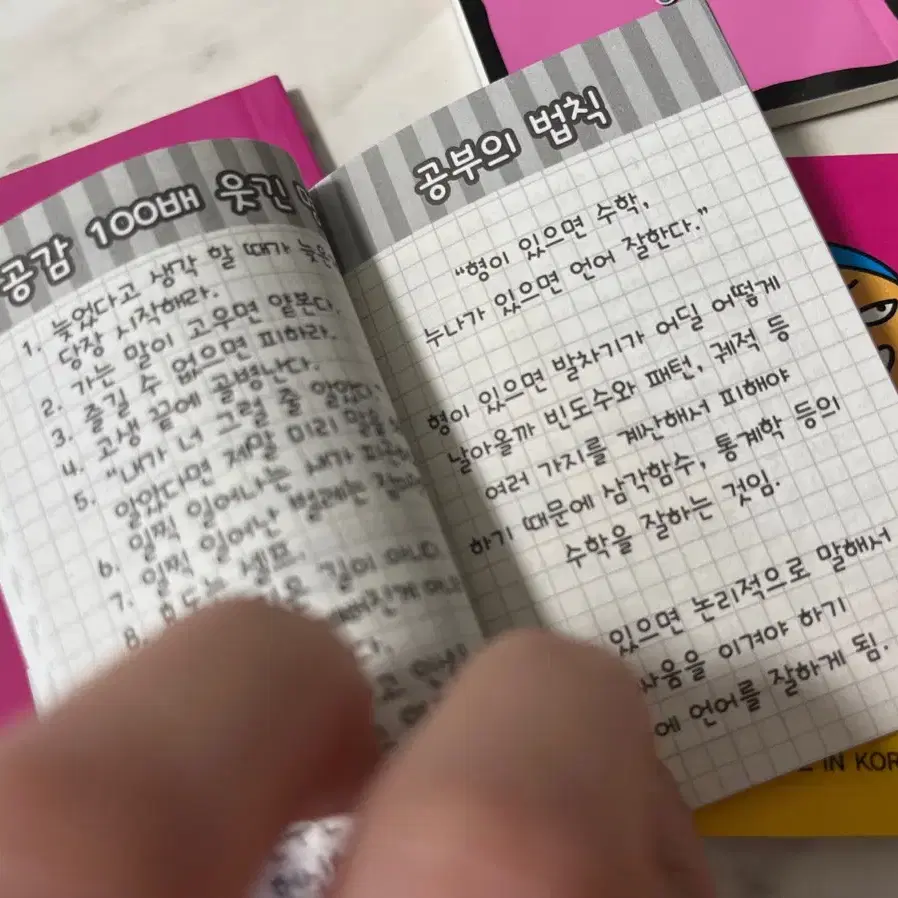 공감 100배 웃긴
1. 늦었다고 생각 할 때가 늦은
당장 시작해라.
2. 가는 말이 고우면 얕본다.
3. 즐길 수 없으면 피하라.
4. 고생 끝에 골병난다.
5. "내가 너 그럴 줄 알았다
알았다면 제발 미리 말을
6. 일찍 일어나는 새가 피곤
7. 일찍 일어난 벌레는
8. 효도는 셀프.
길이 아니
공부의 법칙
"형이 있으면 수학,
누나가 있으면 언어 잘한다."
형이 있으면 발차기가 어딜 어떻게
날아올까 빈도수와 패턴, 궤적 등
여러 가지를 계산해서 피해야
하기 때문에 삼각함수, 통계학 등의
수학을 잘하는 것임.
있으면 논리적으로 말해서
싸움을 이겨야 하기
에 언어를 잘하게 됨.
IN KOR